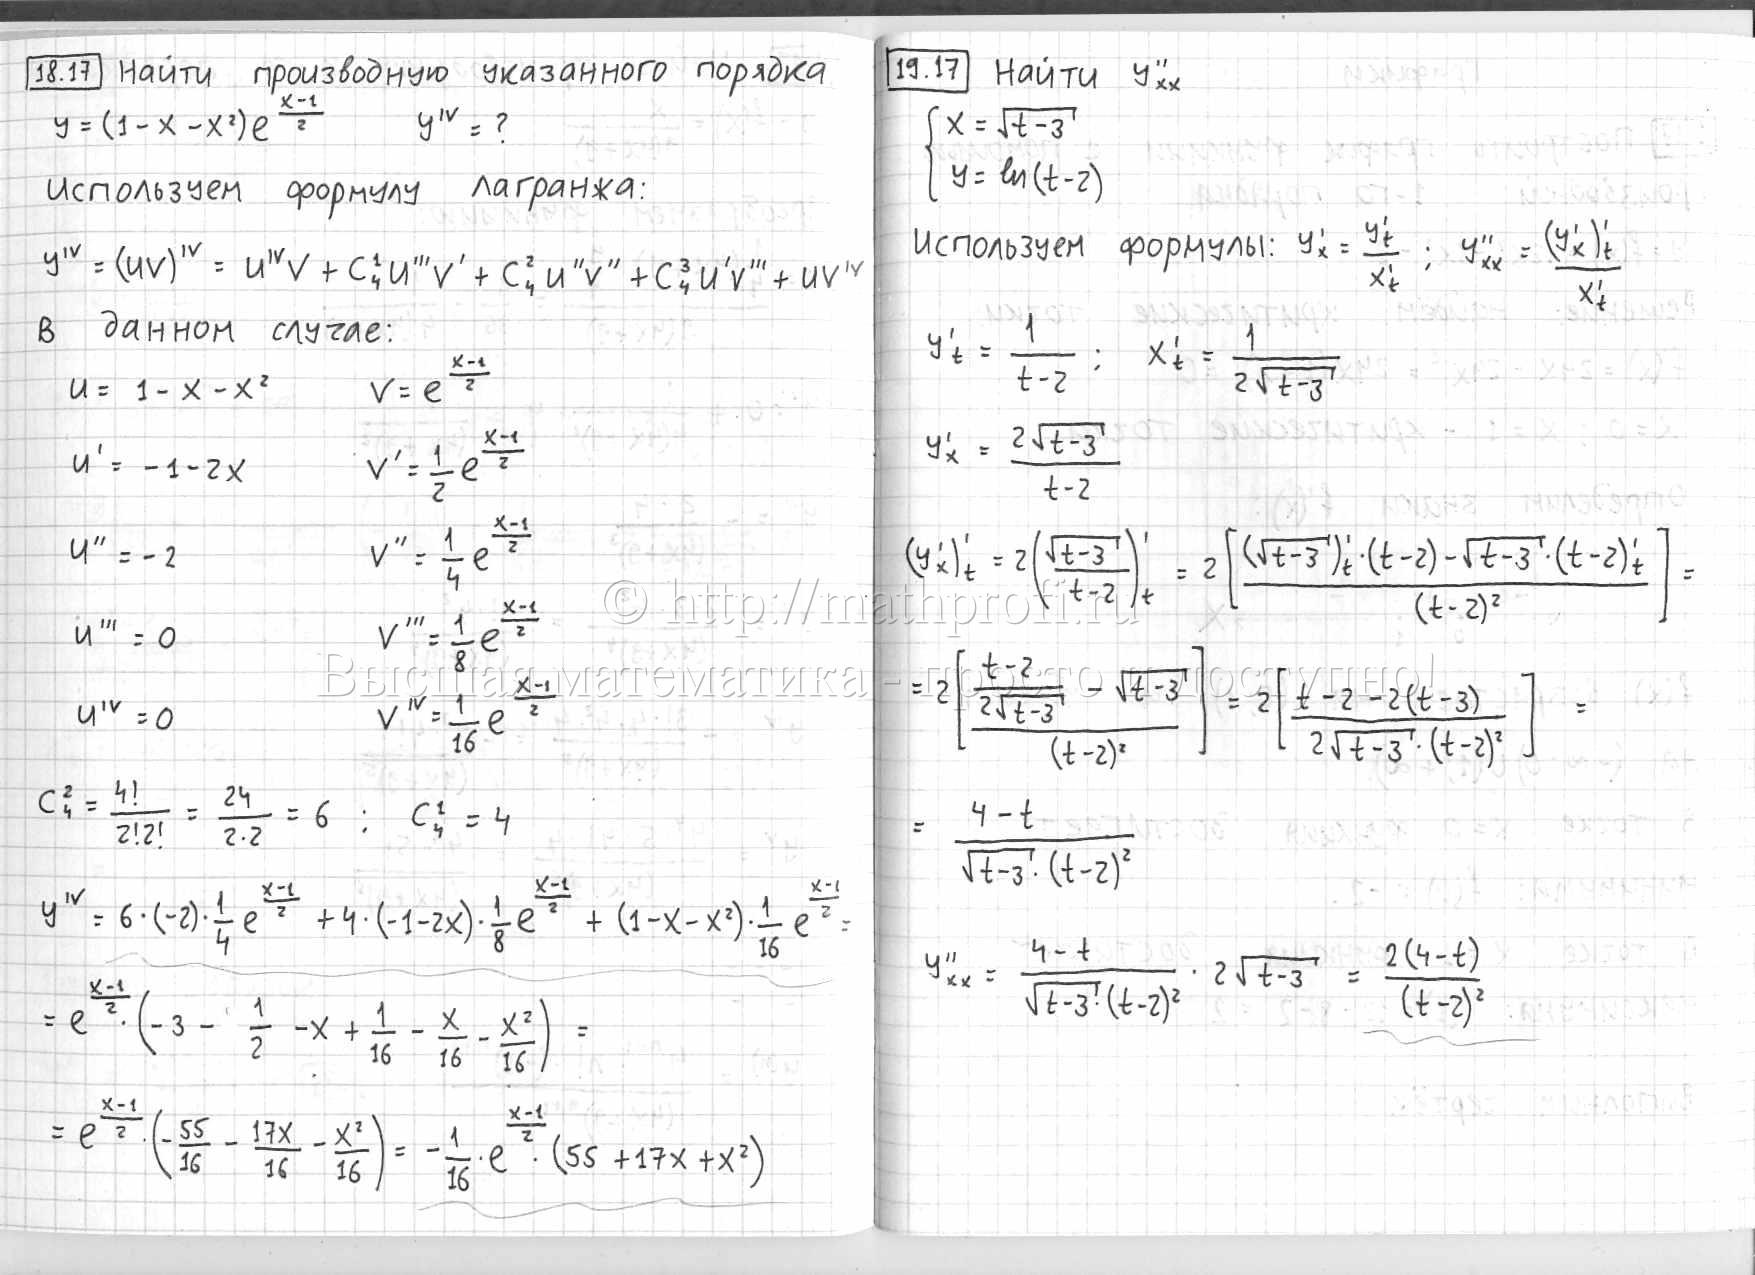 18.17 Найти производную указанного порядка
y = (1 - x - x²)e^((x-1)/2)   y^IV = ?
Используем формулу Лагранжа:
y^IV = (uv)^IV = u^IV v + C₄¹ u''' v' + C₄² u'' v'' + C₄³ u' v''' + uv^IV
В данном случае:
u = 1 - x - x²   v = e^((x-1)/2)
u' = -1 - 2x   v' = 1/2 e^((x-1)/2)
u'' = -2   v'' = 1/4 e^((x-1)/2)
u''' = 0   v''' = 1/8 e^((x-1)/2)
u^IV = 0   v^IV = 1/16 e^((x-1)/2)
C₄² = 4!/(2!2!) = 24/(2·2) = 6 ; C₄¹ = 4
y^IV = 6·(-2)·1/4 e^((x-1)/2) + 4·(-1-2x)·1/8 e^((x-1)/2) + (1-x-x²)·1/16 e^((x-1)/2) =
= e^((x-1)/2)·(-3 - 1/2 - x + 1/16 - x/16 - x²/16) =
= e^((x-1)/2)·(-55/16 - 17x/16 - x²/16) = -1/16·e^((x-1)/2)·(55 + 17x + x²)
19.17 Найти y''xx
{ x = √(t-3)
y = ln(t-2)
Используем формулы: y'x = y't/x't ; y''xx = (y'x)'t/x't
y't = 1/(t-2) ; x't = 1/(2√(t-3))
y'x = 2√(t-3)/(t-2)
(y'x)'t = 2(√(t-3)/(t-2))'t = 2[((√(t-3))'t·(t-2) - √(t-3)·(t-2)'t)/(t-2)²] =
= 2[((t-2)/(2√(t-3)) - √(t-3))/(t-2)²] = 2[(t-2-2(t-3))/(2√(t-3)·(t-2)²)] =
= (4-t)/(√(t-3)·(t-2)²)
y''xx = (4-t)/(√(t-3)·(t-2)²)·2√(t-3) = 2(4-t)/(t-2)²
© http://mathprofi.ru
Высшая математика - просто и доступно!